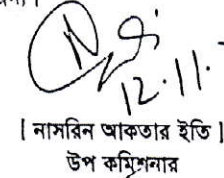 12.11.
[ নাসরিন আকতার ইতি ]
উপ কমিশনার